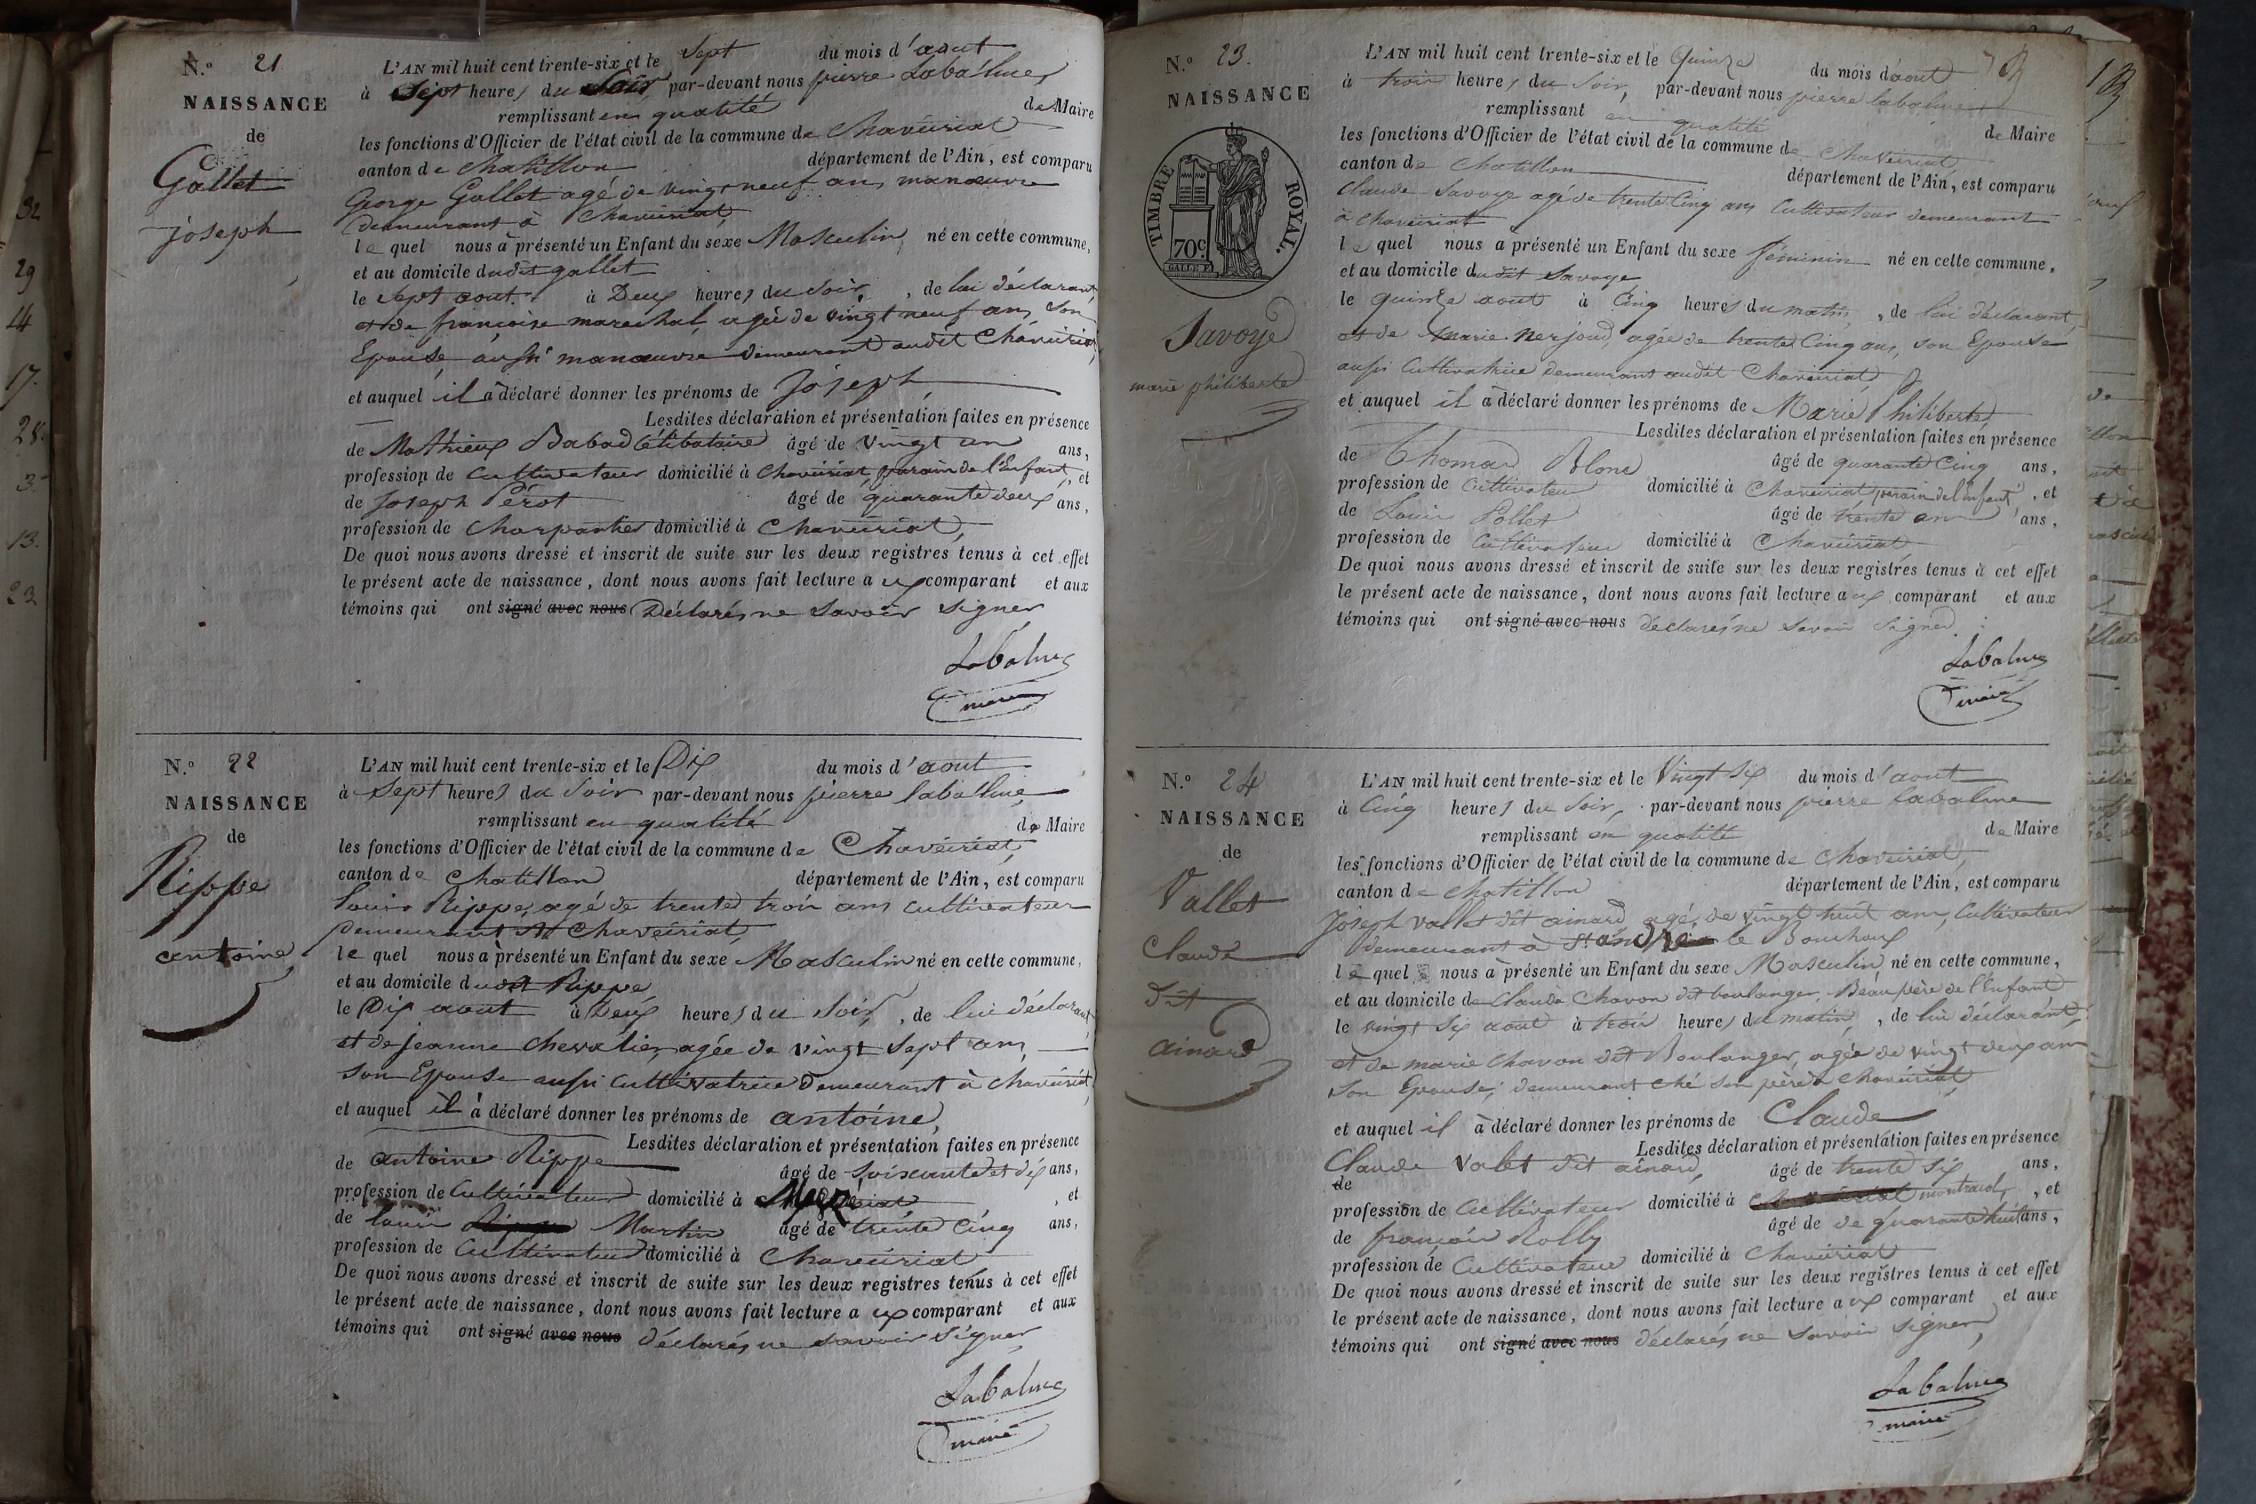 N.º 21
NAISSANCE
de
Gallet
joseph
L'AN mil huit cent trente-six et le Sept du mois d'aout
à Sept heures du Soir, par-devant nous pierre Labalme
remplissant en qualité de Maire
les fonctions d'Officier de l'état civil de la commune de Chaveiriat
canton de Chatillon département de l'Ain, est comparu
George Gallet agé de vingt neuf ans manœuvre
demeurant à Chaveiriat,
le quel nous à présenté un Enfant du sexe Masculin, né en cette commune,
et au domicile dudit gallet
le Sept aout à Deux heures du Soir, de lui déclarant
et de francoise marechal, agée de vingt neuf ans, Son
Epouse, aussi manœuvre demeurant audit Chaveiriat,
et auquel il à déclaré donner les prénoms de joseph
Lesdites déclaration et présentation faites en présence
de Mathieu Babad Célibataire âgé de vingt un ans,
profession de Cultivateur domicilié à Chaveiriat, parain de l'Enfant, et
de Joseph Pérot âgé de quarante deux ans,
profession de Charpantier domicilié à Chaveiriat,
De quoi nous avons dressé et inscrit de suite sur les deux registres tenus à cet effet
le présent acte de naissance, dont nous avons fait lecture a ux comparant et aux
témoins qui ont signé avec nous Déclarés ne Savoir Signer
Labalme
maire
N.º 22
NAISSANCE
de
Rippe
antoine
L'AN mil huit cent trente-six et le Dix du mois d'aout
à Sept heures du Soir par-devant nous pierre labalme
remplissant en qualité de Maire
les fonctions d'Officier de l'état civil de la commune de Chaveiriat,
canton de Chatillon département de l'Ain, est comparu
Louis Rippe, agé de trente trois ans cultivateur
Demeurant à Chaveiriat,
le quel nous à présenté un Enfant du sexe Masculin né en cette commune,
et au domicile dudit Rippe
le Dix aout à Deux heures du Soir, de lui déclarant
et de jeanne Chevalier, agée de vingt Sept ans
Son Epouse aussi Cultivatrice Demeurant à Chaveiriat
et auquel il à déclaré donner les prénoms de antoine,
Lesdites déclaration et présentation faites en présence
de antoine Rippe âgé de Soixante et dix ans,
profession de Cultivateur domicilié à , et
de louis Martin âgé de trente Cinq ans,
profession de Cultivateur domicilié à Chaveiriat
De quoi nous avons dressé et inscrit de suite sur les deux registres tenus à cet effet
le présent acte de naissance, dont nous avons fait lecture a ux comparant et aux
témoins qui ont signé avec nous déclarés ne Savoir Signer
Labalme
maire
N.º 23.
NAISSANCE
de
TIMBRE ROYAL.
70c.
Savoye
marie philiberte
L'AN mil huit cent trente-six et le Quinze du mois d'aout
à trois heures du Soir, par-devant nous pierre labalme
remplissant en qualité de Maire
les fonctions d'Officier de l'état civil de la commune de Chaveiriat
canton de Chatillon département de l'Ain, est comparu
Claude Savoye agé de trente Cinq ans Cultivateur demeurant
à Chaveiriat
le quel nous à présenté un Enfant du sexe féminin né en cette commune,
et au domicile dudit Savoye
le quinze aout à Cinq heures du matin, de lui déclarant,
et de marie nerjoud, agée de trente Cinq ans, son Epouse
aussi Cultivatrice demeurant audit Chaveiriat
et auquel il à déclaré donner les prénoms de Marie Philiberte,
Lesdites déclaration et présentation faites en présence
de Thomas Blonc âgé de quarante Cinq ans,
profession de Cultivateur domicilié à Chaveiriat, parain de l'Enfant, et
de Louis Pollet âgé de trente ans,
profession de Cultivateur domicilié à Chaveiriat
De quoi nous avons dressé et inscrit de suite sur les deux registres tenus à cet effet
le présent acte de naissance, dont nous avons fait lecture a ux comparant et aux
témoins qui ont signé avec nous déclarés ne Savoir Signer
Labalme
maire
N.º 24
NAISSANCE
de
Vallet
Claude
dit
ainard
L'AN mil huit cent trente-six et le Vingt Six du mois d'aout
à Cinq heures du Soir, par-devant nous pierre labalme
remplissant en qualité de Maire
les fonctions d'Officier de l'état civil de la commune de Chaveiriat,
canton de Chatillon département de l'Ain, est comparu
Joseph vallet dit ainard agé de vingt huit ans, Cultivateur
demeurant à St andré le Bouchoux
le quel nous à présenté un Enfant du sexe Masculin né en cette commune,
et au domicile de Claude Chavon dit boulanger, Beau père de l'Enfant
le vingt Six aout à trois heures du matin, de lui déclarant,
et de marie Chavon dit Boulanger, agée de vingt deux ans
Son Epouse, demeurant ché Son père à Chaveiriat,
et auquel il à déclaré donner les prénoms de Claude
Lesdites déclaration et présentation faites en présence
de Claude valet dit ainard, âgé de trente Six ans,
profession de Cultivateur domicilié à , et
de françois Rolly âgé de de quarante huit ans,
profession de Cultivateur domicilié à Chaveiriat
De quoi nous avons dressé et inscrit de suite sur les deux registres tenus à cet effet
le présent acte de naissance, dont nous avons fait lecture a ux comparant et aux
témoins qui ont signé avec nous déclarés ne Savoir Signer,
Labalme
maire